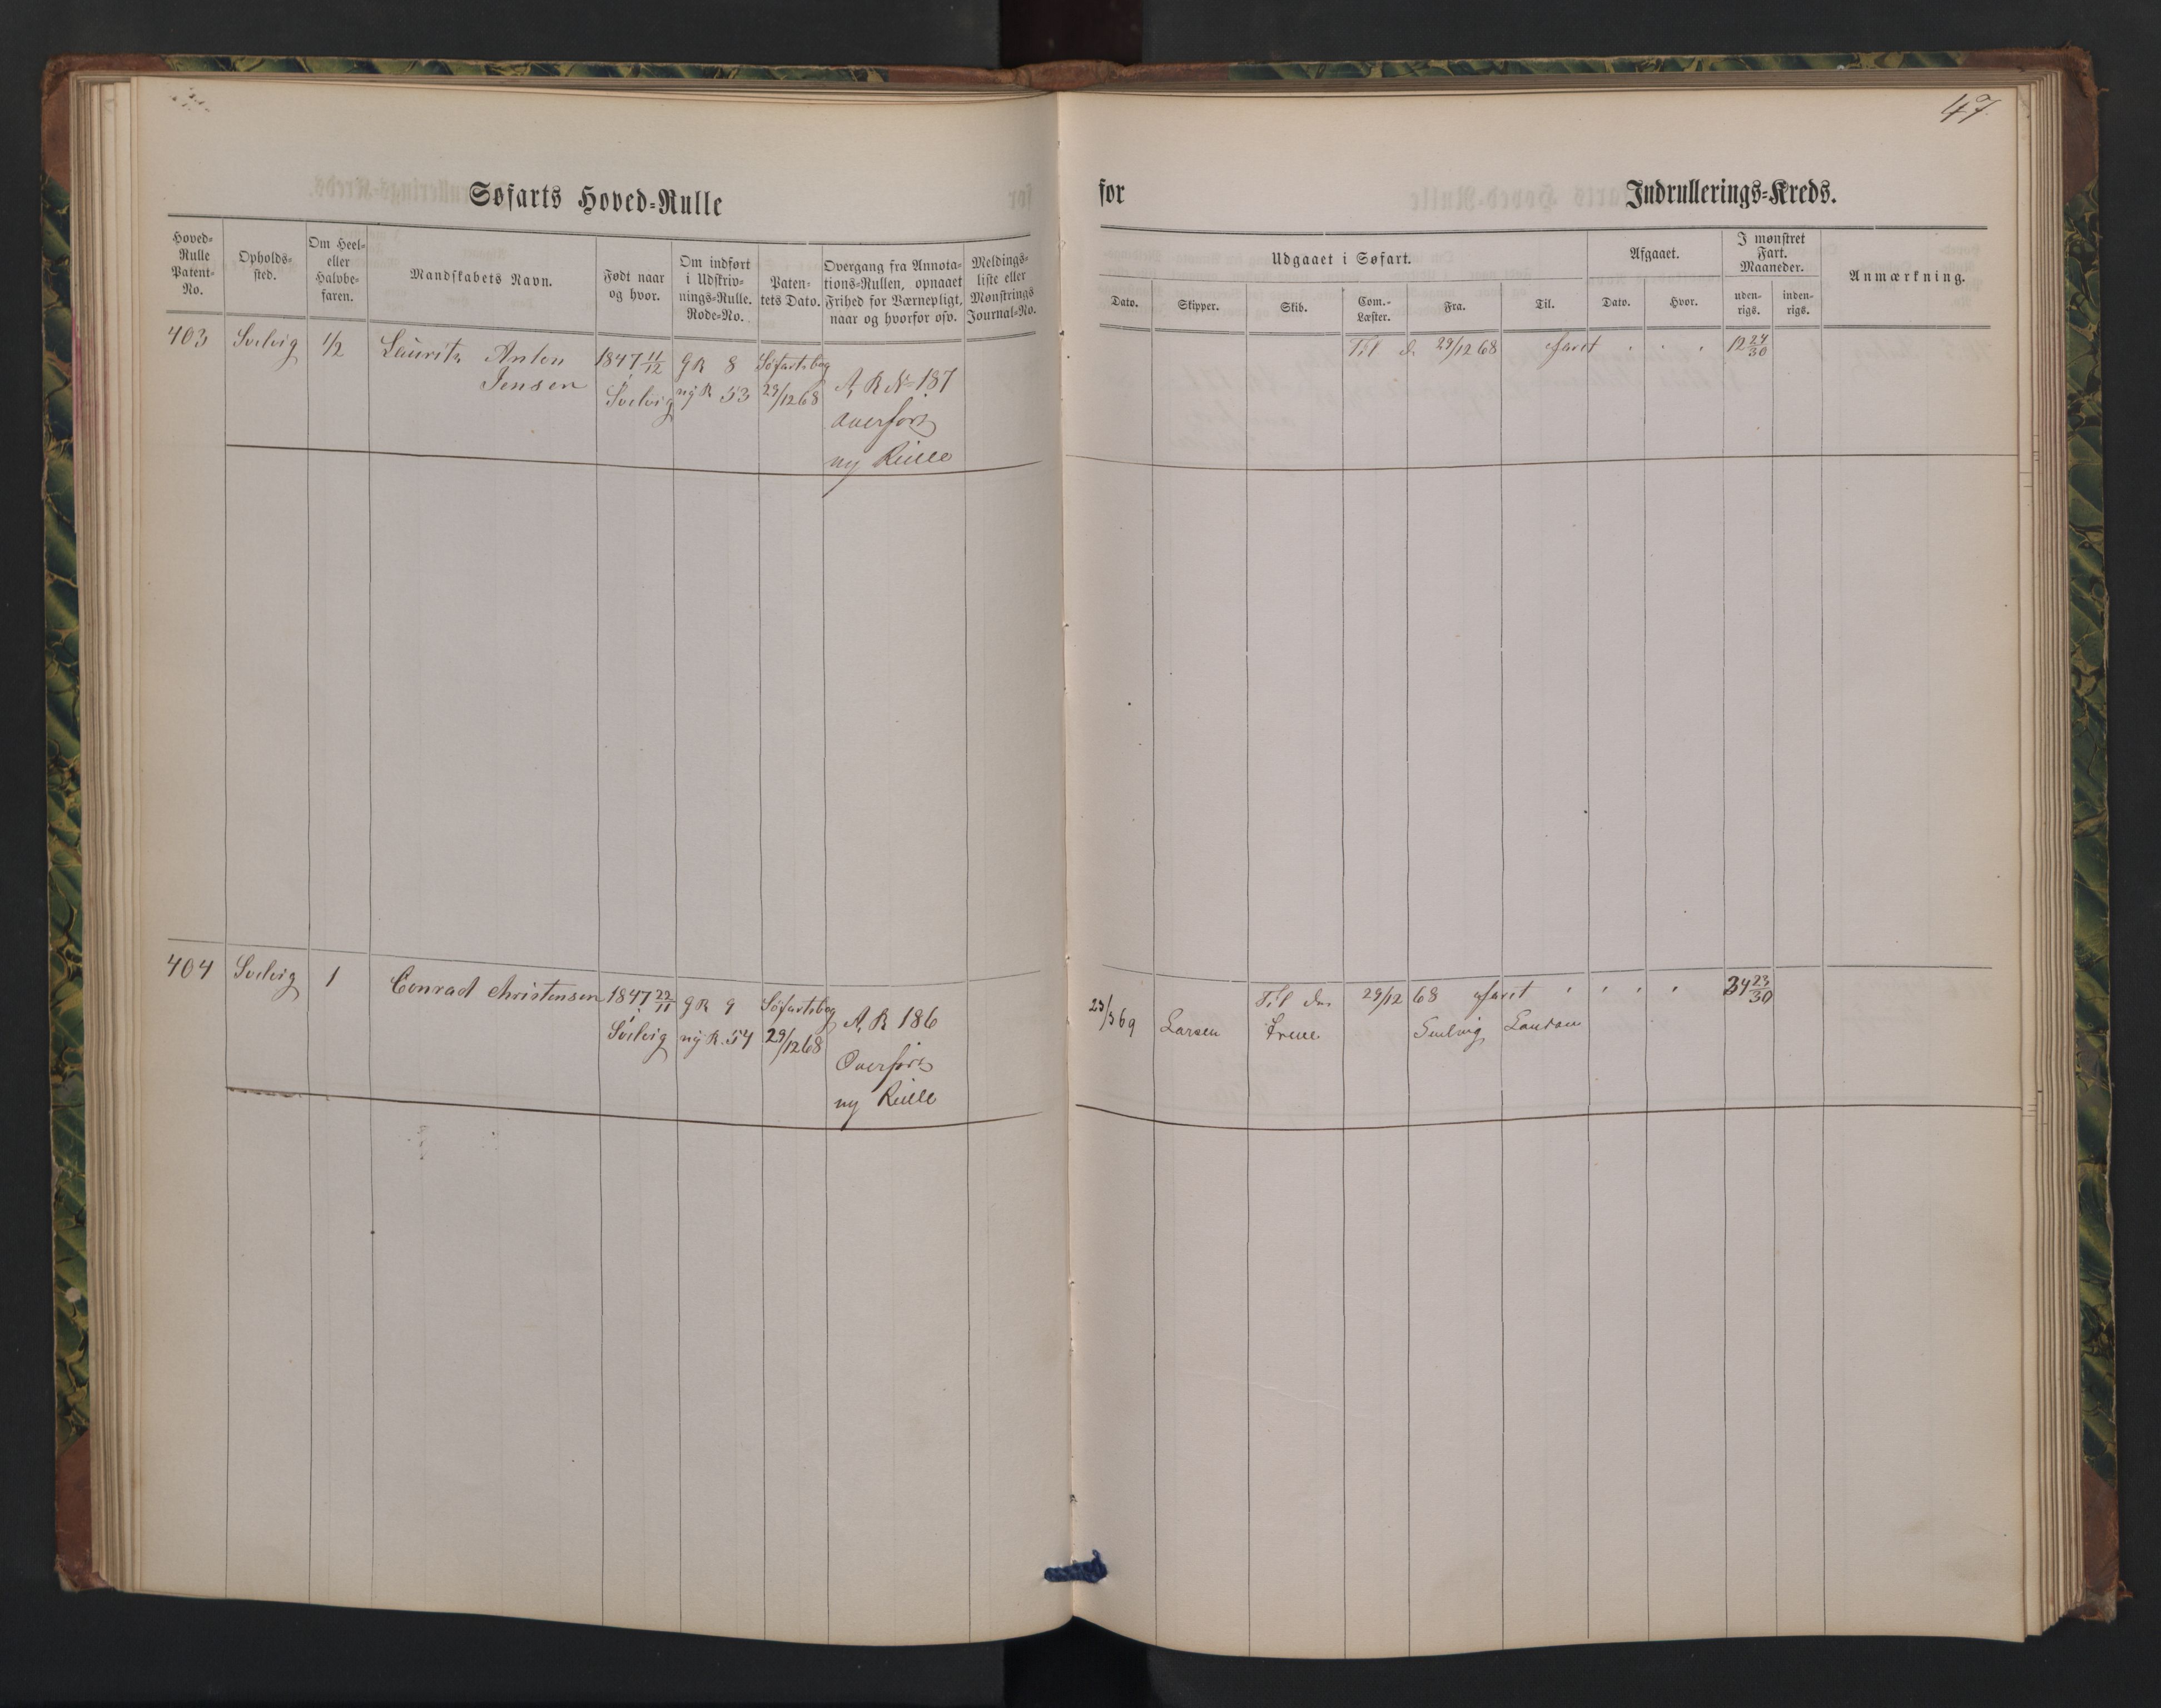 47
Søfarts Hoved-Rulle
for
Indrullerings-Kreds.
Hoved-
Rulle
Patent-
No.
Opholds-
sted.
Om Heel-
eller
Halvbe-
faren.
Mandskabets Navn.
Født naar
og hvor.
Om indført
i Udskriv-
nings-Rulle.
Rode-No.
Paten-
tets Dato.
Overgang fra Annota-
tions-Rullen, opnaaet
Frihed for Værnepligt,
naar og hvorfor osv.
Meldings-
liste eller
Mønstrings
Journal-No.
Udgaaet i Søfart.
Afgaaet.
I mønstret
Fart.
Maaneder.
Anmærkning.
Dato.
Skipper.
Skib.
Com.-
Læster.
Fra.
Til.
Dato.
Hvor.
uden-
rigs.
inden-
rigs.
403 Svelvig 1/2 Lauritz Anton 1847 11/12 gR 8 Söfartsbog
Jensen Svelvig ny R 53 29/12 68 A, R No 187
Overført
ny Rulle
Til d. 29/12 68 faret 12 24/30
404 Svelvig 1 Conrad Christensen 1847 22/11 gR 9 Söfartsbog A, R 186
Svelvig ny R. 54 29/12 68
Overført
ny Rulle
Til den 29/12 68 faret 34 23/30
23/3 69 Larsen Irene Svelvig London